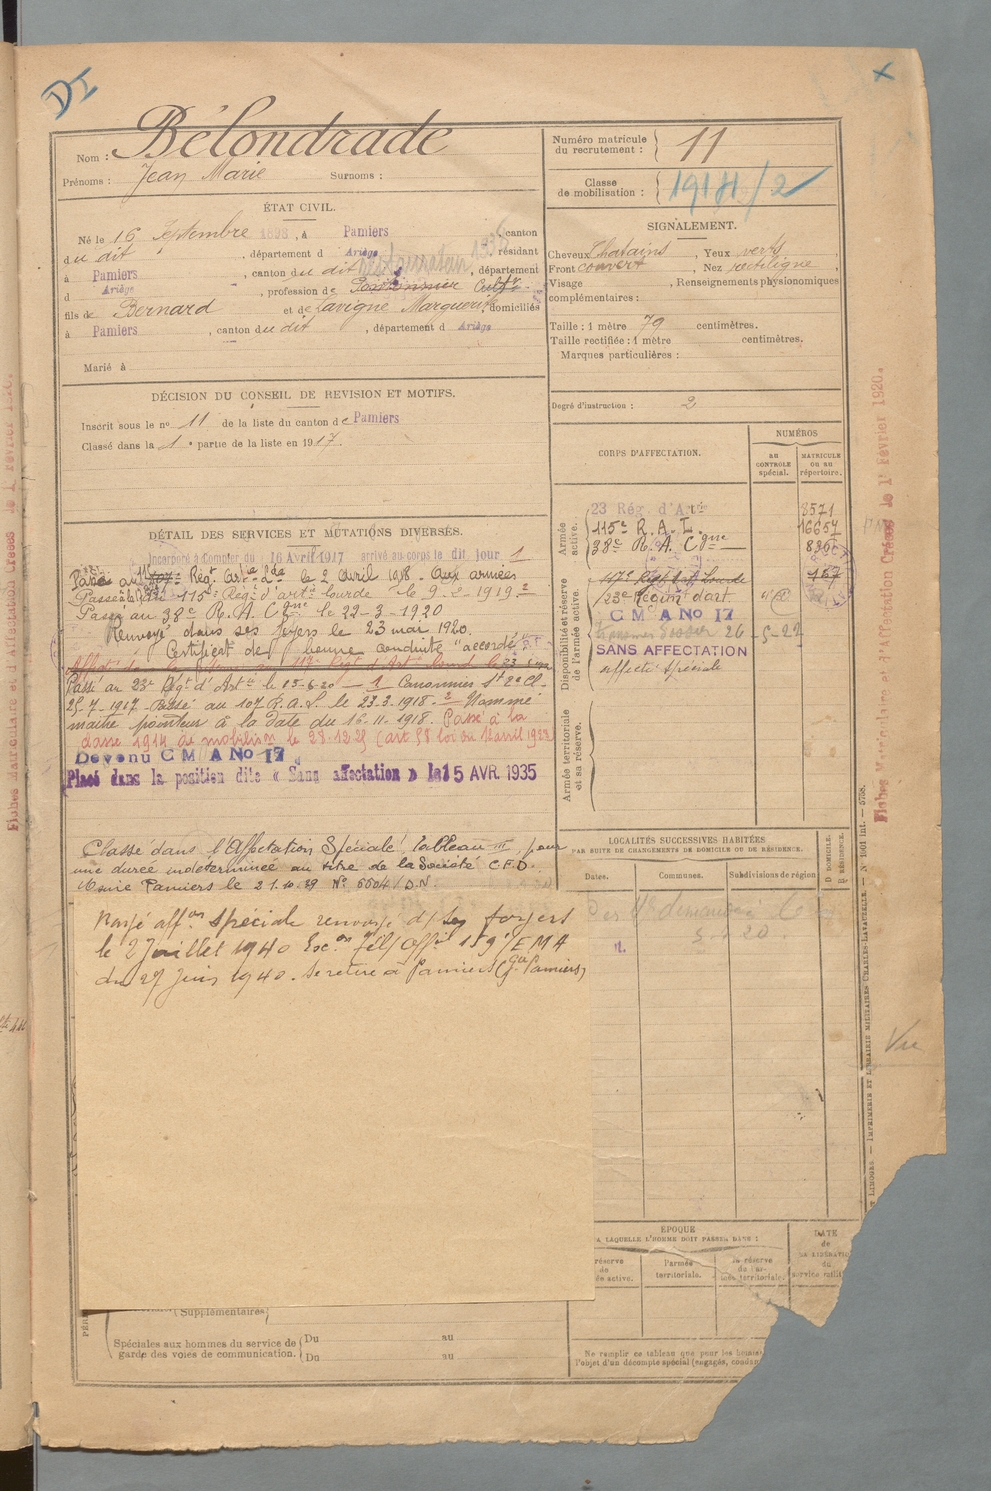 DI
Nom : Bélondrade
Prénoms : Jean Marie Surnoms :
Numéro matricule du recrutement : 11
Classe de mobilisation : 1914/2
ÉTAT CIVIL.
Né le 16 Septembre 1898, à Pamiers, canton
du dit, département d Ariège, résidant
à Pamiers, canton du dit, département
d Ariège, profession de Cultr
fils de Bernard et de Lavigne Marguerite, domiciliés
à Pamiers, canton du dit, département d Ariège
Marié à
SIGNALEMENT.
Cheveux Chatains, Yeux verts
Front couvert, Nez rectiligne,
Visage , Renseignements physionomiques
complémentaires :
Taille : 1 mètre 79 centimètres.
Taille rectifiée : 1 mètre centimètres.
Marques particulières :
Degré d'instruction : 2
DÉCISION DU CONSEIL DE REVISION ET MOTIFS.
Inscrit sous le no 11 de la liste du canton de Pamiers
Classé dans la 1e partie de la liste en 1917.
DÉTAIL DES SERVICES ET MUTATIONS DIVERSES.
Incorporé à compter du 16 Avril 1917 arrivé au corps le dit jour 1
Passé au Régt le 2 avril 1918 - Aux armées
Passé au 115e Régt d'artie lourde le 9-2-1919
Passé au 38e R.A. Cgne le 22-3-1920
Renvoyé dans ses foyers le 23 mai 1920.
Certificat de bonne conduite "accordé"
Passé au 23e Régt d'Artie le 15-6-20 - 1 Canonnier St 2e Cl.
25-7-1917 - Passé au 107 R.A.L. le 23.3.1918 - 2 Nommé
maitre pointeur à la date du 16-11-1918. Passé à la
classe 1914 de mobilisn le 28-12-25 (art 58 loi du 1er avril 1923)
Devenu C M A No 17
Placé dans la position dite « Sans affectation » le 15 AVR. 1935
Classé dans l'Affectation Spéciale, tableau III, pour
une durée indéterminée au titre de la Société C.F.D.
Pamiers le 21.10.39 No 6604/D.N.
Rayé affon spéciale renvoyé ds ses foyers
le 2 Juillet 1940 Off 159/EMA
du 27 Juin 1940. Se retire à Pamiers (Pamiers)
CORPS D'AFFECTATION.
NUMÉROS
au CONTRÔLE spécial.
MATRICULE ou au répertoire.
Armée active.
23 Rég. d'Artie 3571
115e R.A.L. 16657
38e R.A. Cgne
Disponibilité et réserve de l'armée active.
117e Régt Art Lourde 167
23e Régim d'art
C M A No 17
26-5-27
SANS AFFECTATION
affecté spéciale
Armée territoriale et sa réserve.
LOCALITÉS SUCCESSIVES HABITÉES
PAR SUITE DE CHANGEMENTS DE DOMICILE OU DE RÉSIDENCE.
Dates. Communes. Subdivisions de région
D DOMICILE.
R RÉSIDENCE.
Vu
ÉPOQUE
A LAQUELLE L'HOMME DOIT PASSER DANS :
DATE de
réserve de active.
l'armée territoriale.
la réserve de l'armée territoriale.
(Supplémentaires
Spéciales aux hommes du service de garde des voies de communication.
Du au
Du au
Ne remplir ce tableau que pour les
l'objet d'un décompte spécial (engagés,
LIMOGES. — IMPRIMERIE ET LIBRAIRIE MILITAIRES CHARLES-LAVAUZELLE. — N° 1061 int. — 5758.
Fiches Matriculaire et d'Affectation Créées le 1er Février 1920.